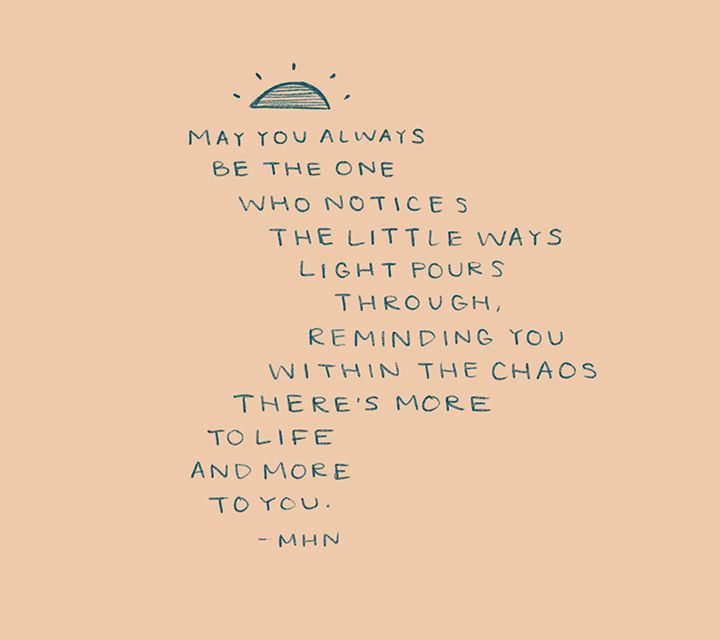 MAY YOU ALWAYS
BE THE ONE
WHO NOTICES
THE LITTLE WAYS
LIGHT POURS
THROUGH,
REMINDING YOU
WITHIN THE CHAOS
THERE'S MORE
TO LIFE
AND MORE
TO YOU.
-MHN